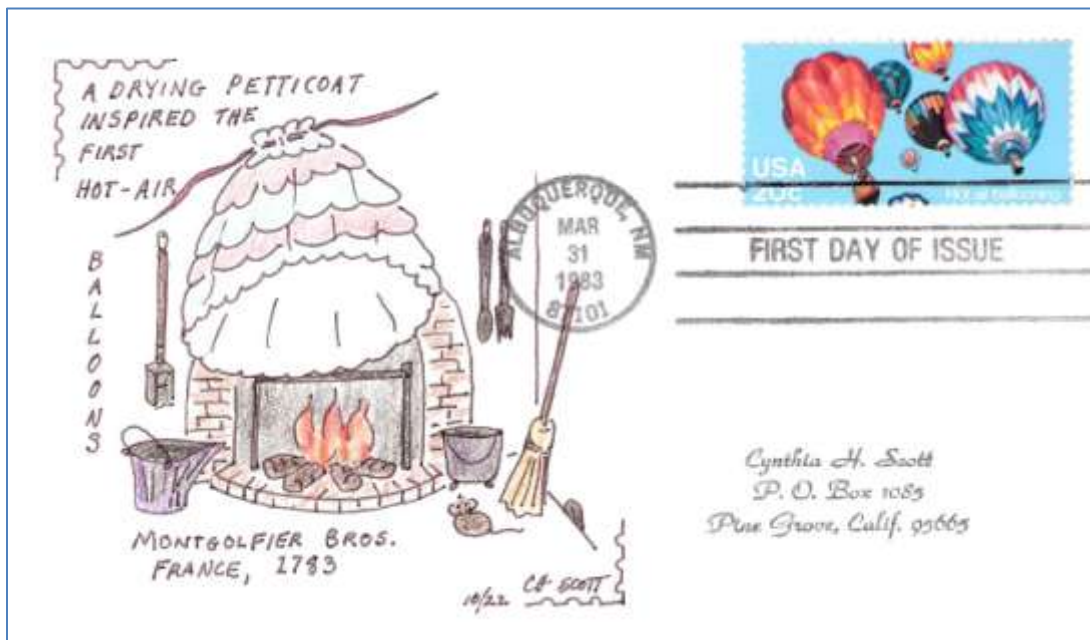 A DRYING PETTICOAT
INSPIRED THE
FIRST
HOT-AIR
BALLOONS
MONTGOLFIER BROS.
FRANCE, 1783
10/22 CH SCOTT
USA
20c
ALBUQUERQUE, NM
MAR
31
1983
87101
FIRST DAY OF ISSUE
Cynthia H. Scott
P. O. Box 1085
Pine Grove, Calif. 95665